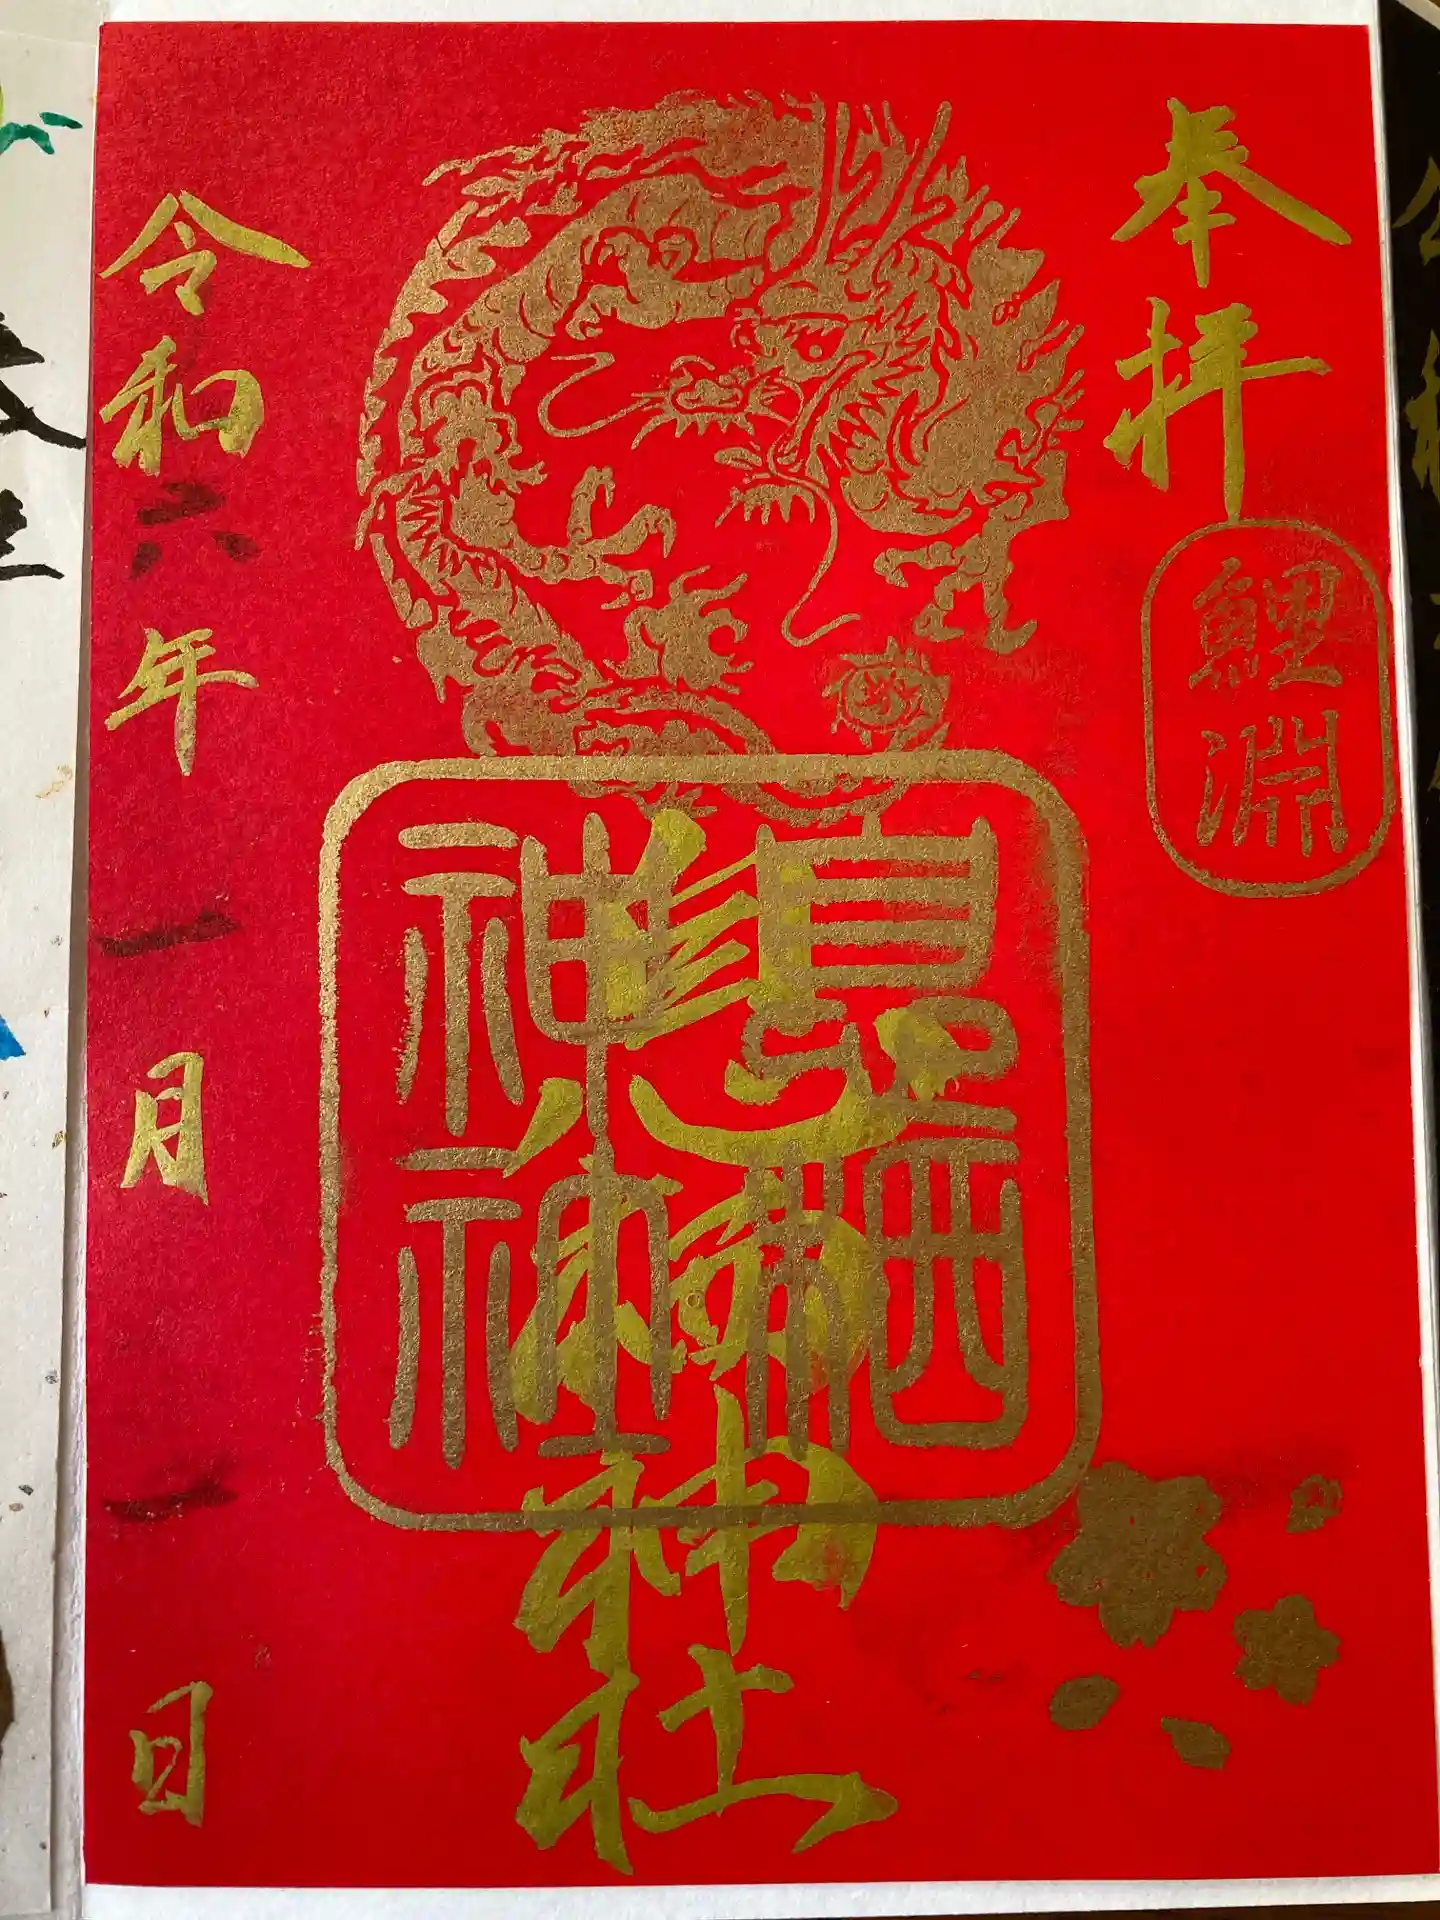 奉拝
鯉淵
息栖神社
息栖
神社
令和六年一月一日